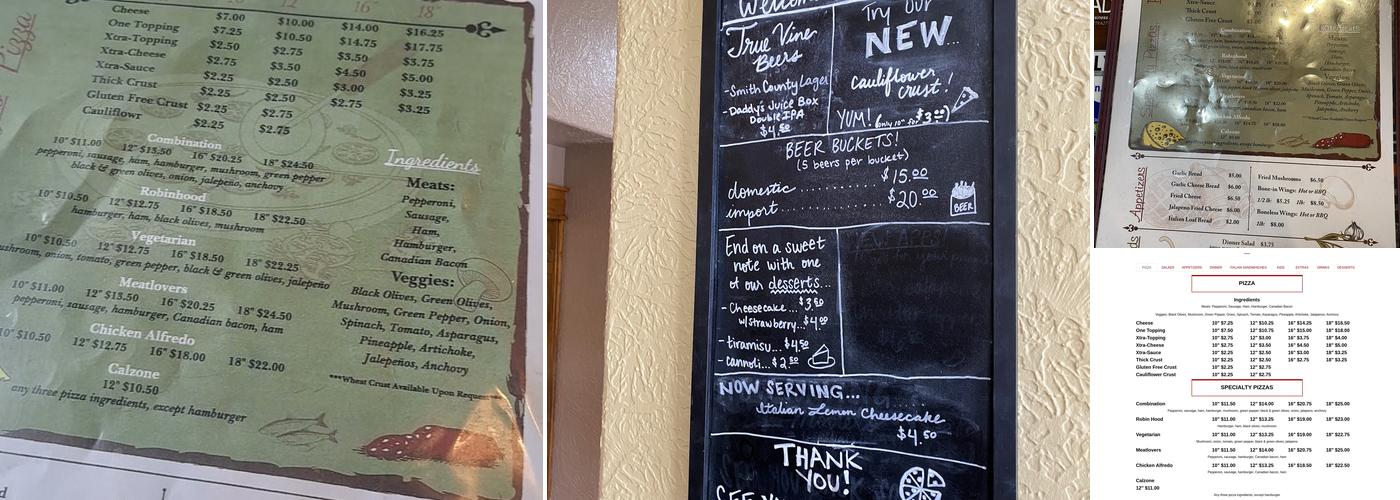 Pizza
12"
16"
18"
Cheese $7.00 $10.00 $14.00 $16.25
One Topping $7.25 $10.50 $14.75 $17.75
Xtra-Topping $2.50 $2.75 $3.50 $3.75
Xtra-Cheese $2.75 $3.50 $4.50 $5.00
Xtra-Sauce $2.25 $2.50 $3.00 $3.25
Thick Crust $2.25 $2.50 $2.75 $3.25
Gluten Free Crust $2.25 $2.75
Cauliflowr $2.25 $2.75
Combination
10" $11.00 12" $13.50 16" $20.25 18" $24.50
pepperoni, sausage, ham, hamburger, mushroom, green pepper
black & green olives, onion, jalepeño, anchovy
Robinhood
10" $10.50 12" $12.75 16" $18.50 18" $22.50
hamburger, ham, black olives, mushroom
Vegetarian
10" $10.50 12" $12.75 16" $18.50 18" $22.25
ushroom, onion, tomato, green pepper, black & green olives, jalepeño
Meatlovers
10" $11.00 12" $13.50 16" $20.25 18" $24.50
pepperoni, sausage, hamburger, Canadian bacon, ham
Chicken Alfredo
10" $10.50 12" $12.75 16" $18.00 18" $22.00
Calzone
12" $10.50
any three pizza ingredients, except hamburger
Ingredients
Meats:
Pepperoni,
Sausage,
Ham,
Hamburger,
Canadian Bacon
Veggies:
Black Olives, Green Olives,
Mushroom, Green Pepper, Onion,
Spinach, Tomato, Asparagus,
Pineapple, Artichoke,
Jalepeños, Anchovy
***Wheat Crust Available Upon Request
Welcome
True Vine
Beers
-Smith County Lager
-Daddy's Juice Box
Double IPA
$4.50
Try Our
NEW...
cauliflower
crust!
YUM! (only 10" for $3.00)
BEER BUCKETS!
(5 beers per bucket)
domestic ........ $15.00
import ........ $20.00
BEER
End on a sweet
note with one
of our desserts...
-Cheesecake... $3.50
w/strawberry... $4.00
-tiramisu... $4.50
-Cannoli... $2.50
NOW SERVING...
Italian Lemon Cheesecake
$4.50
THANK
YOU!
SEE YOU
Thick Crust
Gluten Free Crust
Combination
Robinhood
Vegetarian
Chicken Alfredo
Calzone
Veggies:
Appetizers
Garlic Bread $5.00
Garlic Cheese Bread $6.00
Fried Cheese $6.50
Jalapeño Fried Cheese $6.00
Italian Loaf Bread $2.00
Fried Mushrooms $6.50
Bone-in Wings: Hot or BBQ
1/2 lb: $5.25 1lb: $8.50
Boneless Wings: Hot or BBQ
1lb: $8.00
Dinner Salad $3.75
PIZZA SALADS APPETIZERS DINNER ITALIAN SANDWICHES KIDS EXTRAS DRINKS DESSERTS
PIZZA
Ingredients
Meats: Pepperoni, Sausage, Ham, Hamburger, Canadian Bacon
Veggies: Black Olives, Mushroom, Green Pepper, Onion, Spinach, Tomato, Asparagus, Pineapple, Artichoke, Jalapenos, Anchovy
Cheese 10" $7.25 12" $10.25 16" $14.25 18" $16.50
One Topping 10" $7.50 12" $10.75 16" $15.00 18" $18.00
Xtra-Topping 10" $2.75 12" $3.00 16" $3.75 18" $4.00
Xtra-Cheese 10" $2.75 12" $3.50 16" $4.50 18" $5.00
Xtra-Sauce 10" $2.25 12" $2.50 16" $3.00 18" $3.25
Thick Crust 10" $2.25 12" $2.50 16" $2.75 18" $3.25
Gluten Free Crust 10" $2.25 12" $2.75
Cauliflower Crust 10" $2.25 12" $2.75
SPECIALTY PIZZAS
Combination 10" $11.50 12" $14.00 16" $20.75 18" $25.00
Pepperoni, sausage, ham, hamburger, mushroom, green pepper, black & green olives, onion, jalapeno, anchovy
Robin Hood 10" $11.00 12" $13.25 16" $19.00 18" $23.00
Hamburger, ham, black olives, mushroom
Vegetarian 10" $11.00 12" $13.25 16" $19.00 18" $22.75
Mushroom, onion, tomato, green pepper, black & green olives, jalapeno
Meatlovers 10" $11.50 12" $14.00 16" $20.75 18" $25.00
Pepperoni, sausage, hamburger, Canadian bacon, ham
Chicken Alfredo 10" $11.00 12" $13.25 16" $18.50 18" $22.50
Pepperoni, sausage, hamburger, Canadian bacon, ham
Calzone
12" $11.00
Any three pizza ingredients, except hamburger